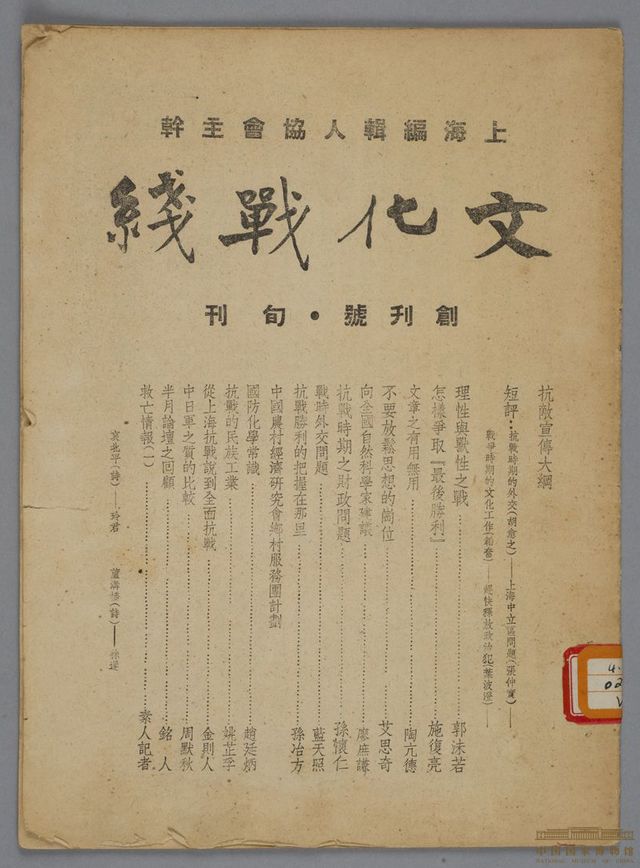 上海編輯人協會主幹
文化戰綫
創刊號・旬刊
抗敵宣傳大綱
短評：抗戰時期的外交(胡愈之)——上海中立區問題(張仲實)——
戰爭時期的文化工作(韜奮)——趕快釋放政治犯(葉波澄)——
理性與獸性之戰……郭沫若
怎樣爭取『最後勝利』……施復亮
文章之有用無用……陶亢德
不要放鬆思想的崗位……艾思奇
向全國自然科學家建議……廖庶謙
抗戰時期之財政問題……孫懷仁
戰時外交問題……藍天照
抗戰勝利的把握在那里……孫冶方
中國農村經濟研究會鄉村服務團計劃
國防化學常識……趙廷炳
抗戰的民族工業……姚芷孚
從上海抗戰說到全面抗戰……金則人
中日軍之質的比較……周默秋
半月論壇之回顧……銘人
救亡情報(一)……素人記者
哀北平(詩)——玲君
蘆溝橋(詩)——徐遲
中国国家博物馆
NATIONAL MUSEUM OF CHINA